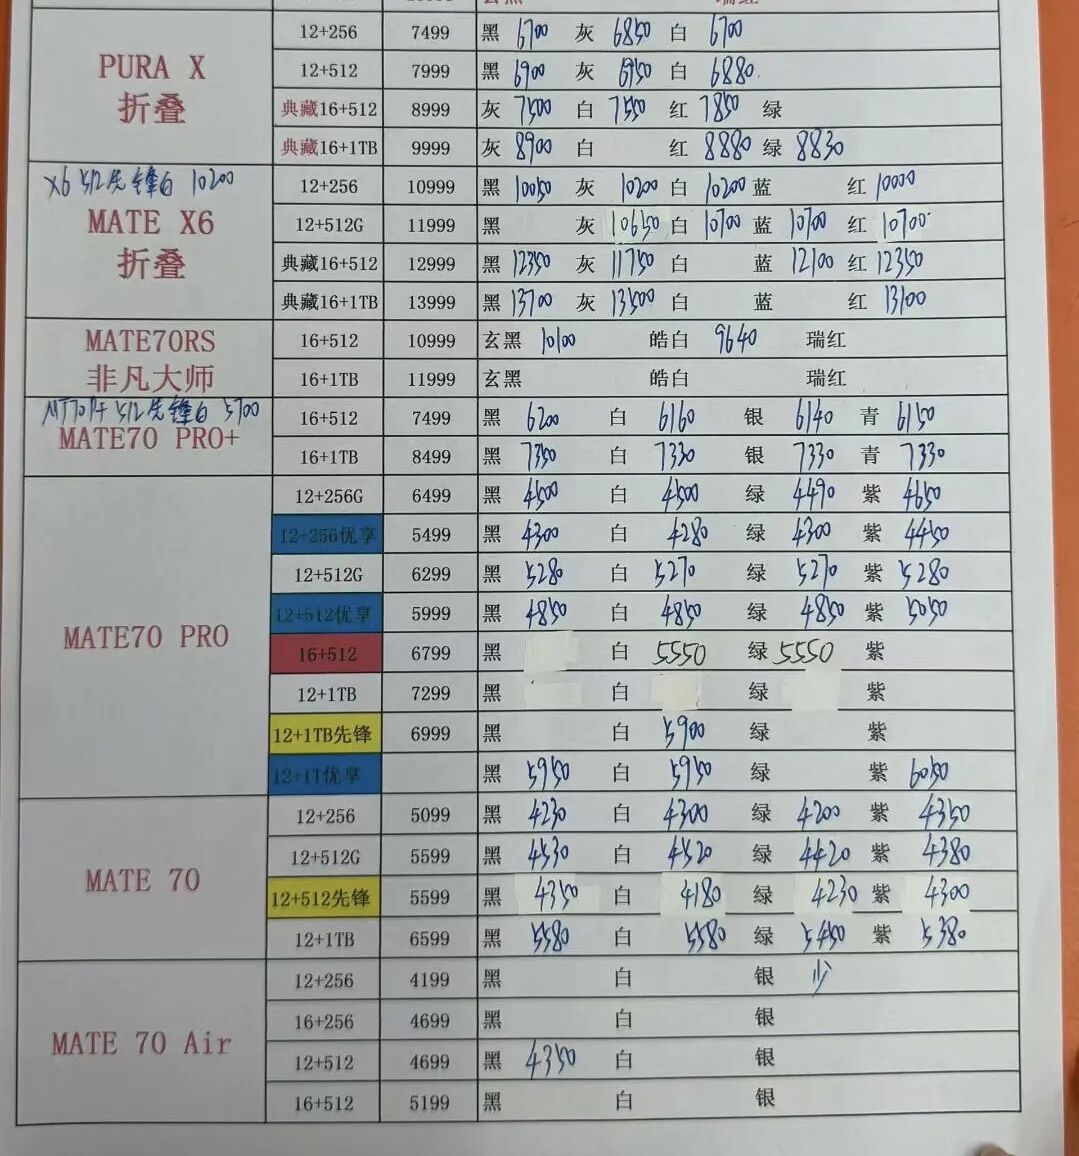 玄黑 瑞红
PURA X
折叠
12+256 7499 黑 6700 灰 6850 白 6700
12+512 7999 黑 6900 灰 6950 白 6880
典藏16+512 8999 灰 7500 白 7550 红 7850 绿
典藏16+1TB 9999 灰 8900 白 红 8880 绿 8830
X6 512先锋白 10200
MATE X6
折叠
12+256 10999 黑 10050 灰 10200 白 10200 蓝 红 10000
12+512G 11999 黑 灰 10650 白 10700 蓝 10700 红 10700
典藏16+512 12999 黑 12350 灰 11750 白 蓝 12100 红 12350
典藏16+1TB 13999 黑 13700 灰 13500 白 蓝 红 13100
MATE70RS
非凡大师
16+512 10999 玄黑 10100 皓白 9640 瑞红
16+1TB 11999 玄黑 皓白 瑞红
512先锋白 5700
MATE70 PRO+
16+512 7499 黑 6200 白 6160 银 6140 青 6150
16+1TB 8499 黑 7350 白 7330 银 7330 青 7330
MATE70 PRO
12+256G 6499 黑 4500 白 4500 绿 4490 紫 4650
12+256优享 5499 黑 4300 白 4280 绿 4300 紫 4450
12+512G 6299 黑 5280 白 5270 绿 5270 紫 5280
12+512优享 5999 黑 4850 白 4850 绿 4850 紫 5050
16+512 6799 黑 白 5550 绿 5550 紫
12+1TB 7299 黑 白 绿 紫
12+1TB先锋 6999 黑 白 5900 绿 紫
12+1T优享 黑 5950 白 5950 绿 紫 6050
MATE 70
12+256 5099 黑 4230 白 4300 绿 4200 紫 4350
12+512G 5599 黑 4530 白 4520 绿 4420 紫 4380
12+512先锋 5599 黑 4350 白 4180 绿 4230 紫 4300
12+1TB 6599 黑 5580 白 5580 绿 5450 紫 5380
MATE 70 Air
12+256 4199 黑 白 银 少
16+256 4699 黑 白 银
12+512 4699 黑 4350 白 银
16+512 5199 黑 白 银